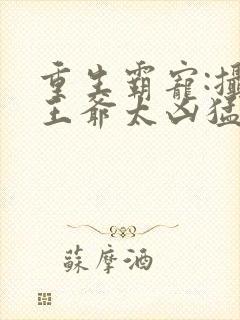 重生霸寵:攝
王爺太凶猛
蘇摩酒